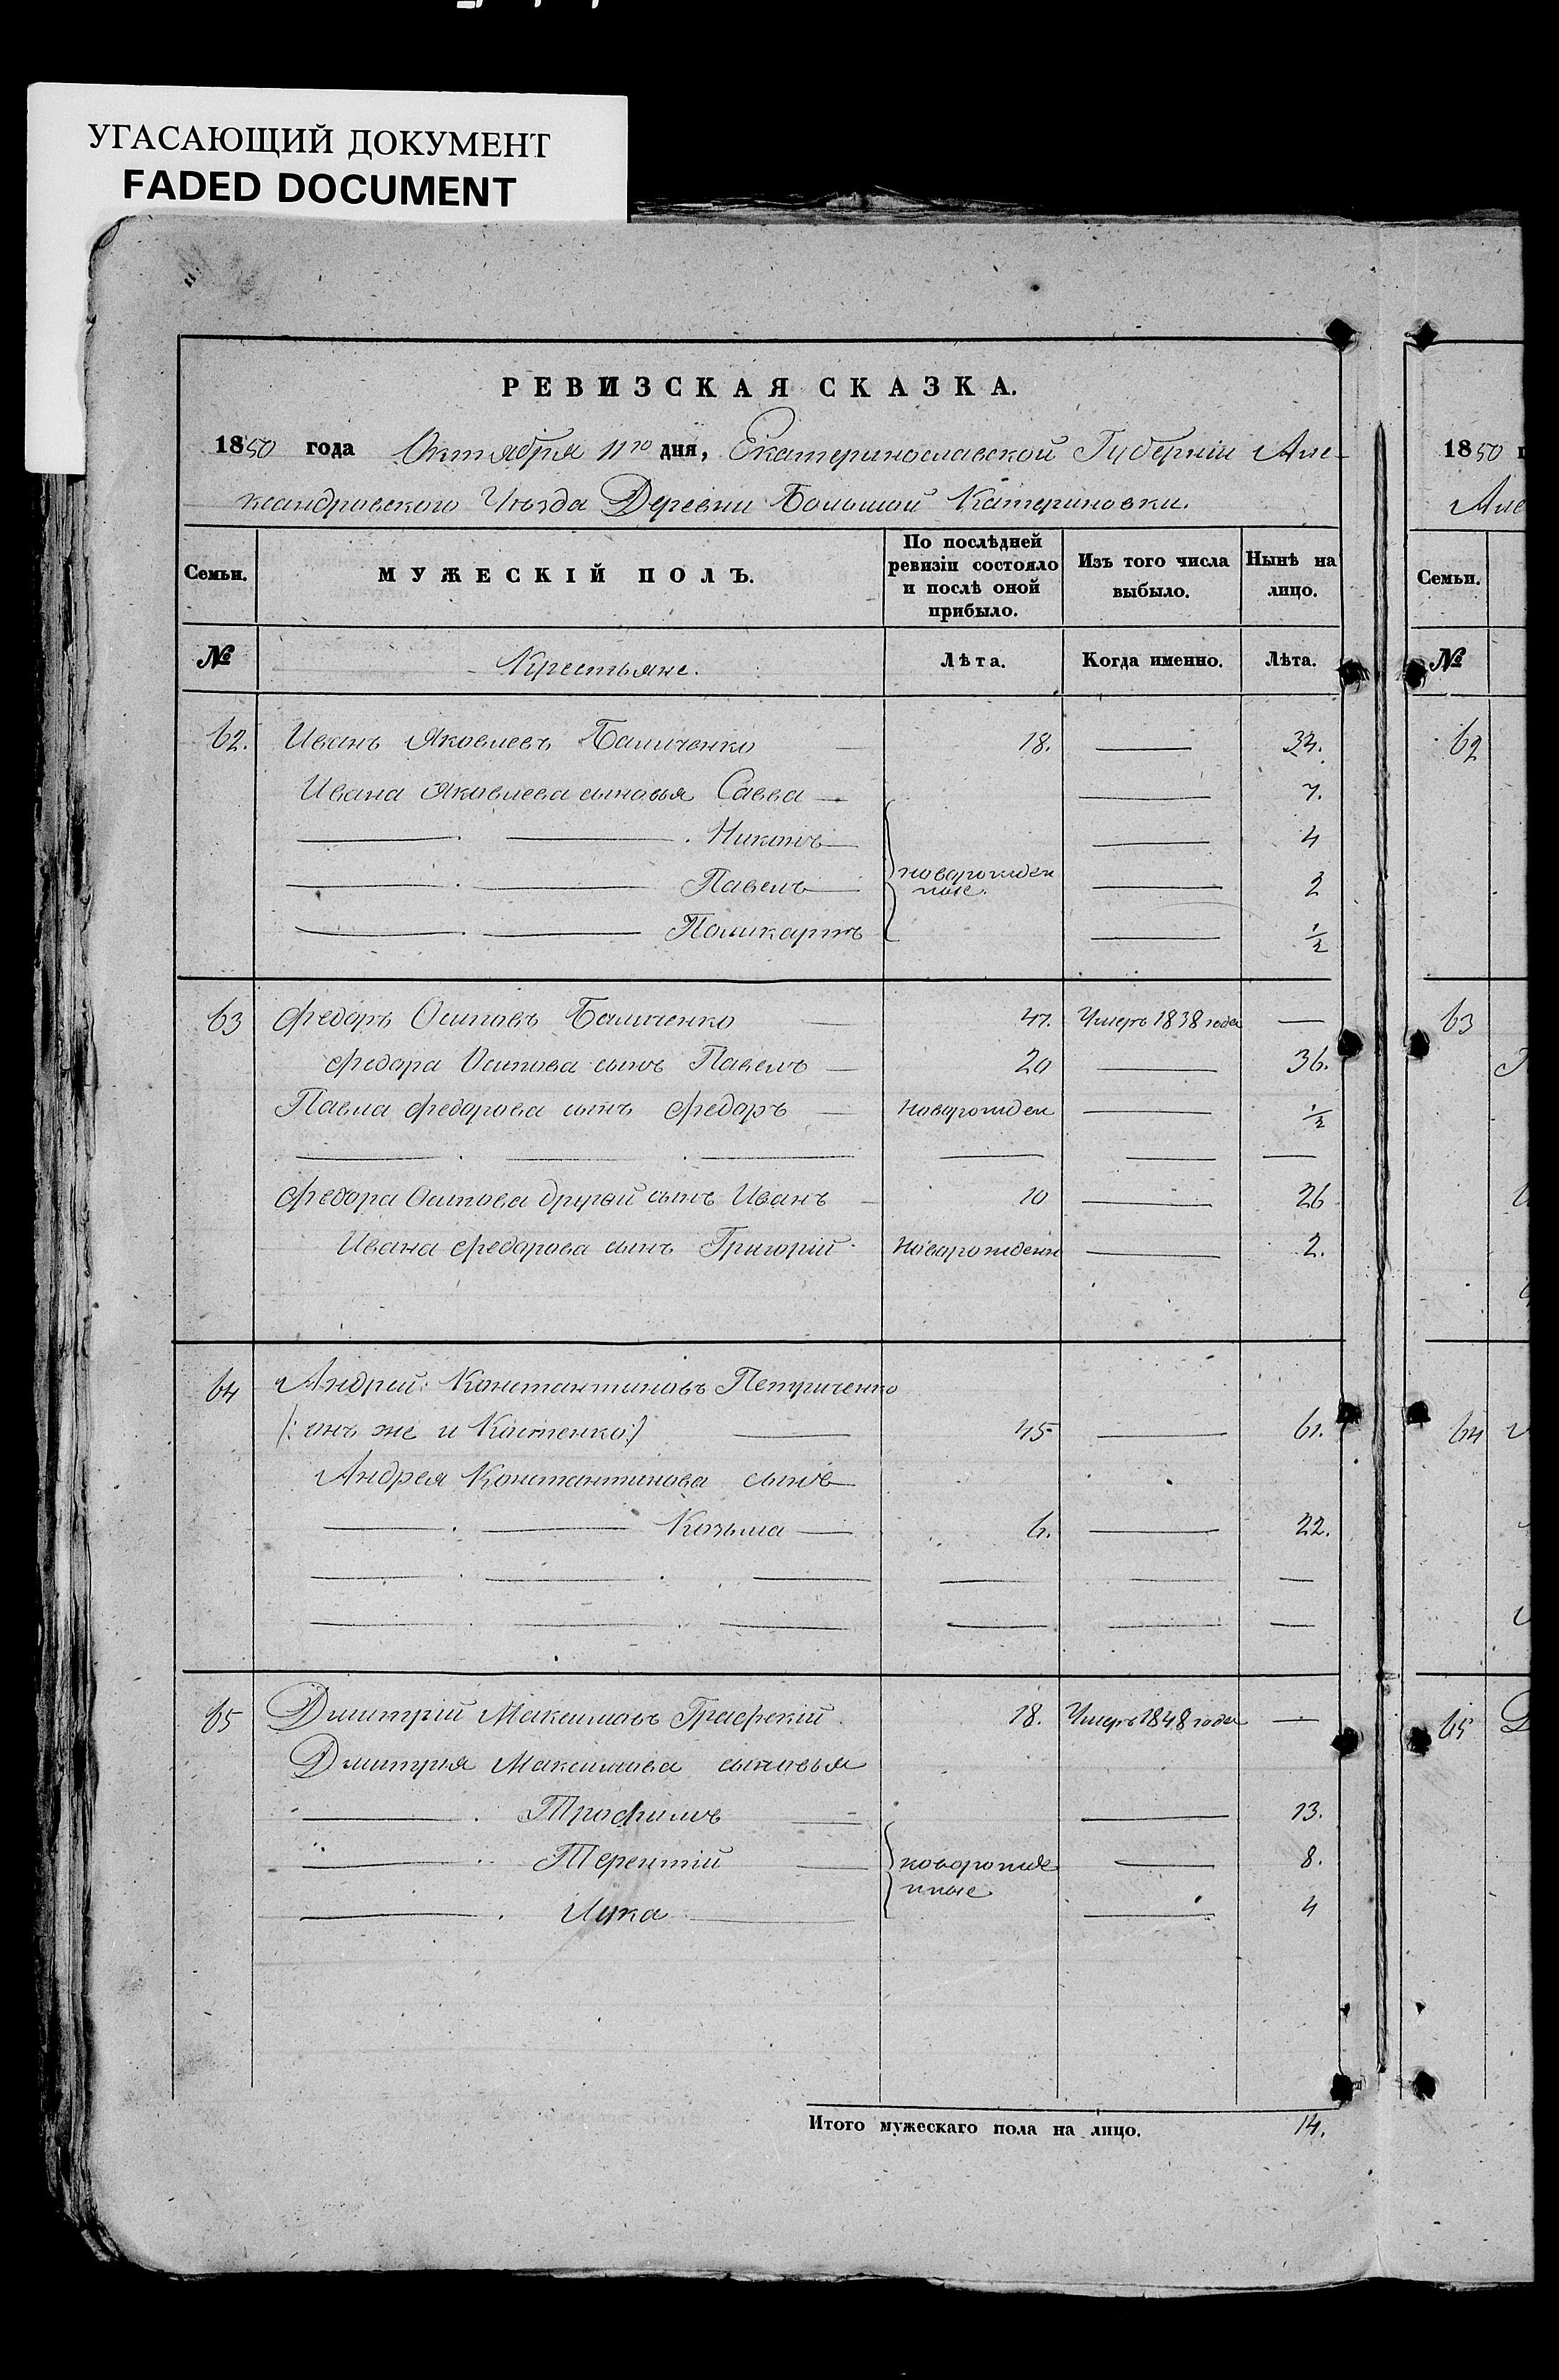 УГАСАЮЩИЙ ДОКУМЕНТ
FADED DOCUMENT
РЕВИЗСКАЯ СКАЗКА.
1850 года Октября 11го дня, Екатеринославской Губерніи Але-
ксандровского Уѣзда Деревни Большой Катериновки.
Семьи. МУЖЕСКІЙ ПОЛЪ. По послѣдней ревизіи состояло и послѣ оной прибыло. Изъ того числа выбыло. Нынѣ на лицо.
№ Крестьяне. Лѣта. Когда именно. Лѣта.
62. Иванъ Яковлевъ 18. — 34.
Ивана Яковлева сыновья Савва — — 7.
— . — . Никонъ — — 4
— . — Павелъ — новорожден — 2
ные.
— . — Поликарпъ — ½
63 Федоръ Осиповъ — 47. Умеръ 1838 года —
Федора Осипова сынъ Павелъ — 20 — 36.
Павла Федорова сынъ Федоръ — новорожден — ½
— . — . — — — —
Федора Осипова другой сынъ Иванъ — 10 — 26
Ивана Федорова сынъ Григорій новорожденн — 2.
64 Андрей Константиновъ Петриченко
/: онъ же и Костенко :/ — 45 — 61.
Андрея Константинова сынъ —
— . — Козьма — 6. — 22.
— . — . — — — —
— . — . — — — —
65 Дмитрій Максимовъ Графскій 18. Умеръ 1848 года —
Дмитрія Максимова сыновья
— . Трофимъ — — 13.
— . Терентій — новорожде — 8.
нные
— . Лука — — 4
Итого мужескаго пола на лицо. 14.
1850
Але
Семьи.
№
62
63
64
65 Д